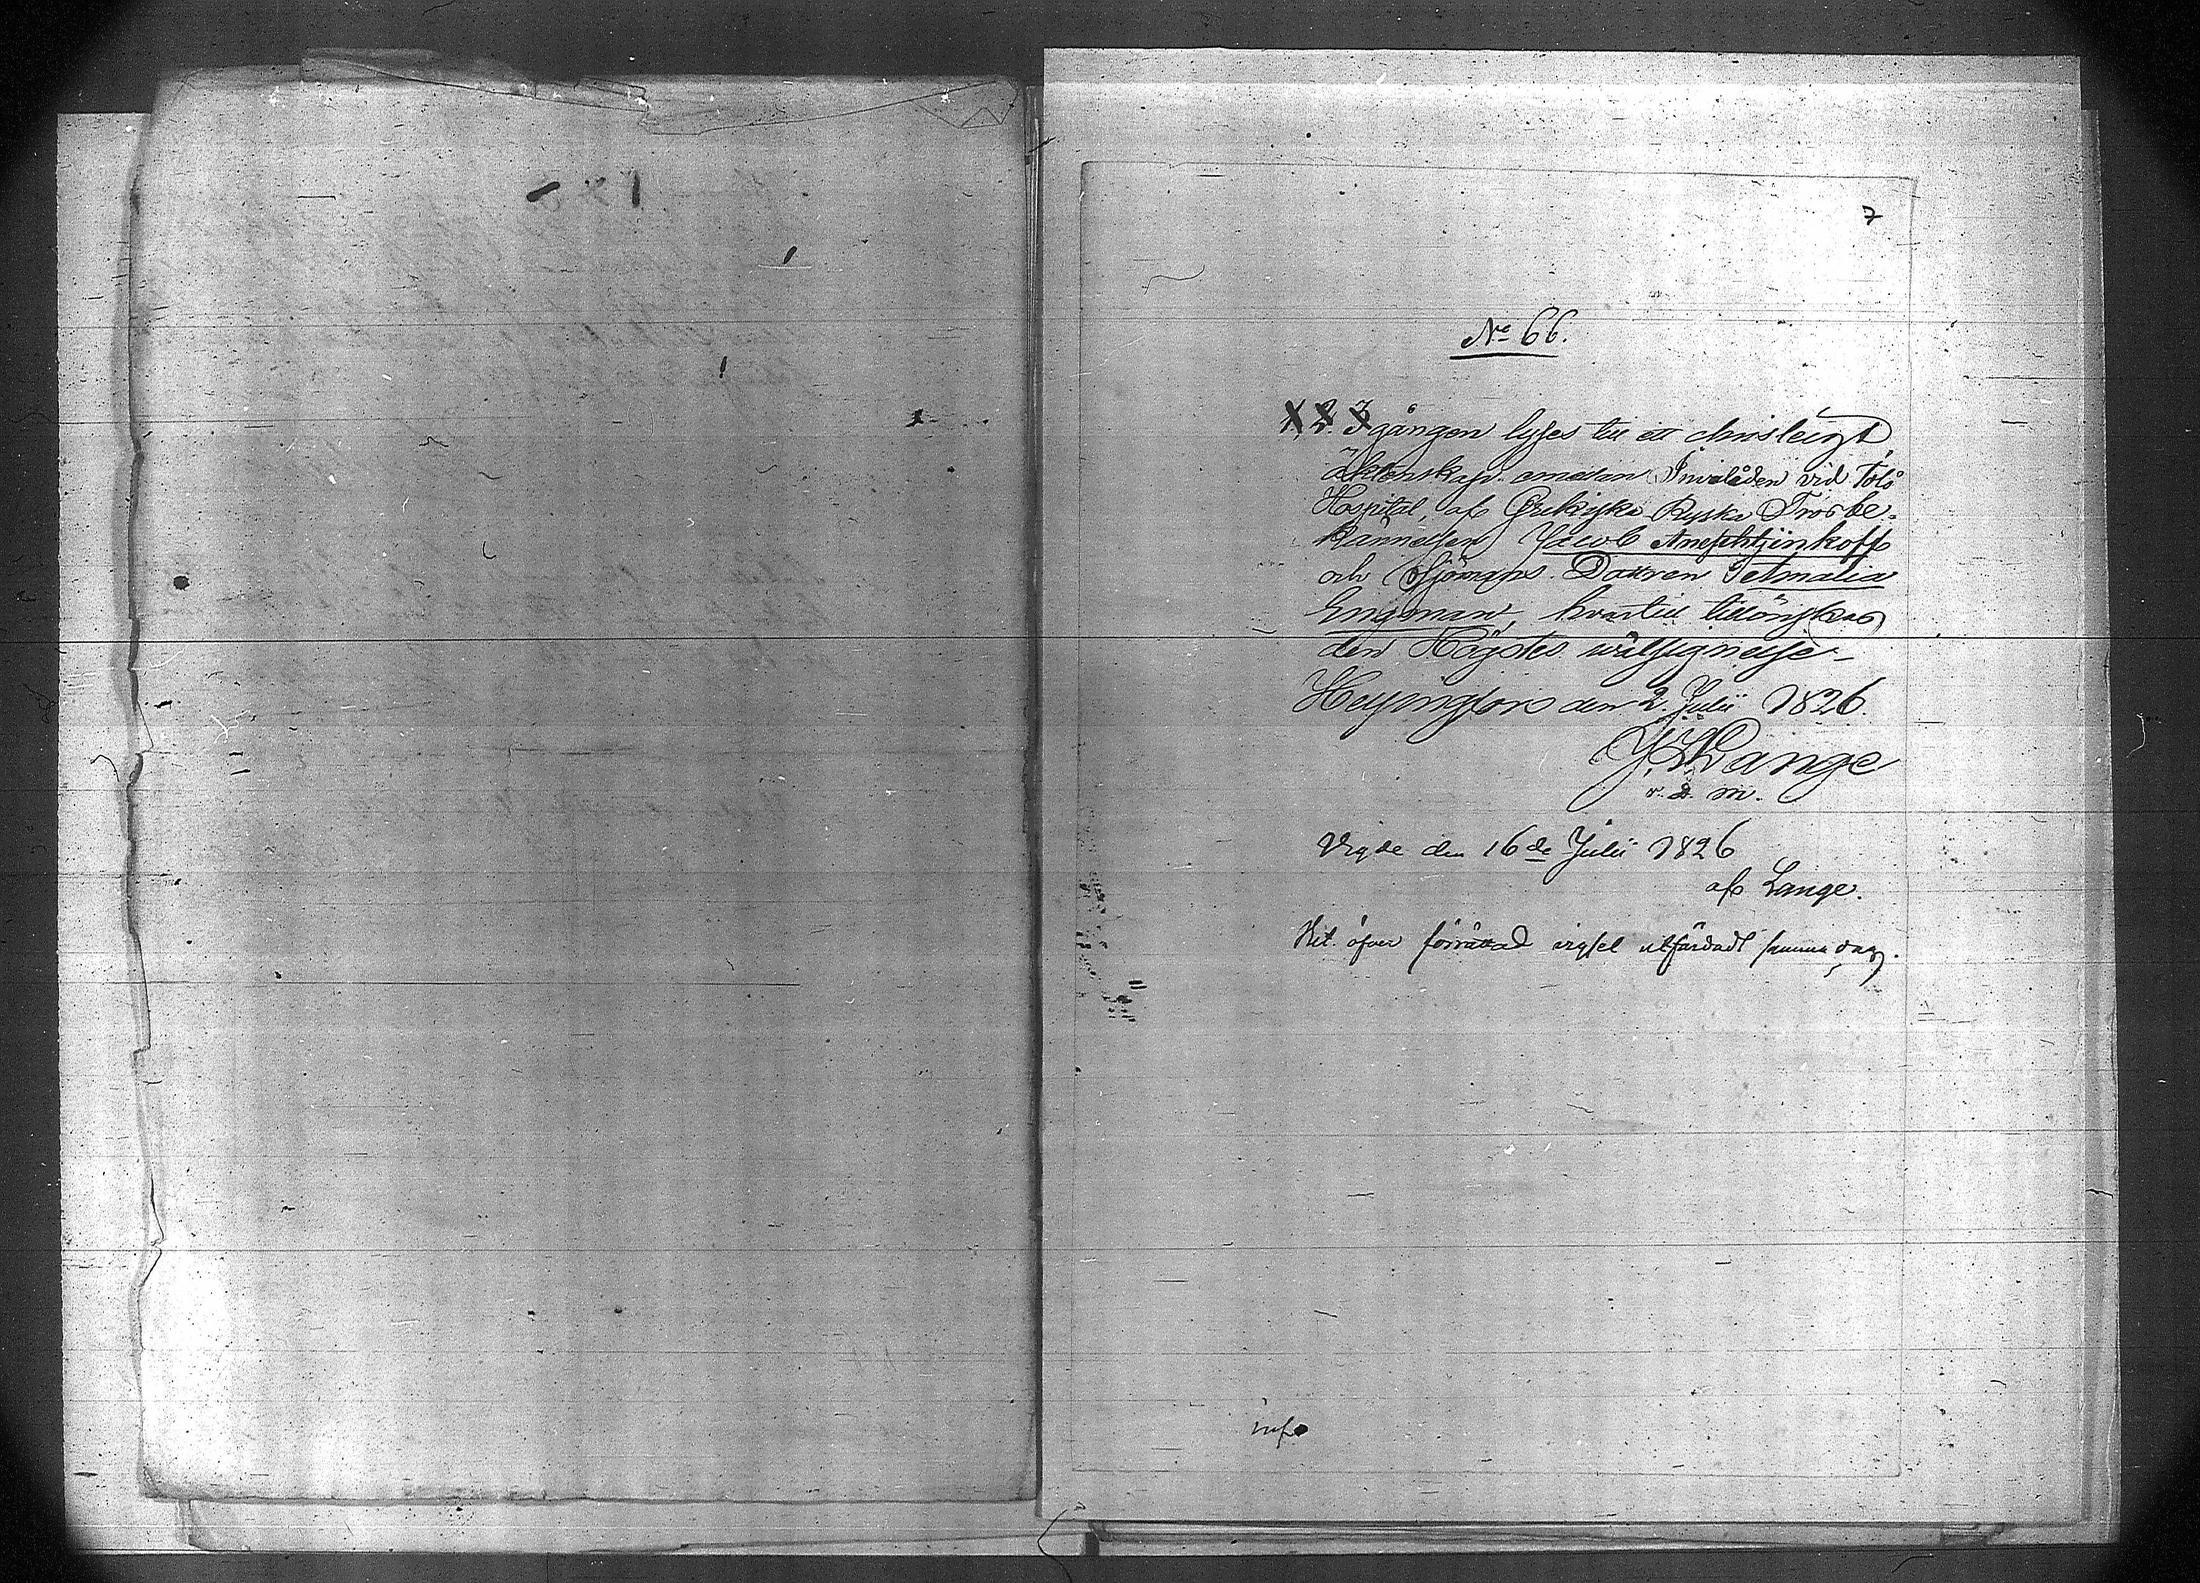 7
No 66.
1. 2. 3 gången lyses till ett christeligt
Äktenskap emellan Invaliden vid Tölö
Hospital, af Grekiska Ryska Trosbe-
kännelsen Jacob Anephtjinkoff
och Sjömans Dottren Amalia
Engman, hvartill tillönskas
den Högstes wälsignelse
Helsingfors den 2 Julii 1826.
Lange
v. D. m.
Vigde den 16de Julii 1826
af Lange.
Att. öfver förrättad vigsel utfärdadt samma dag.